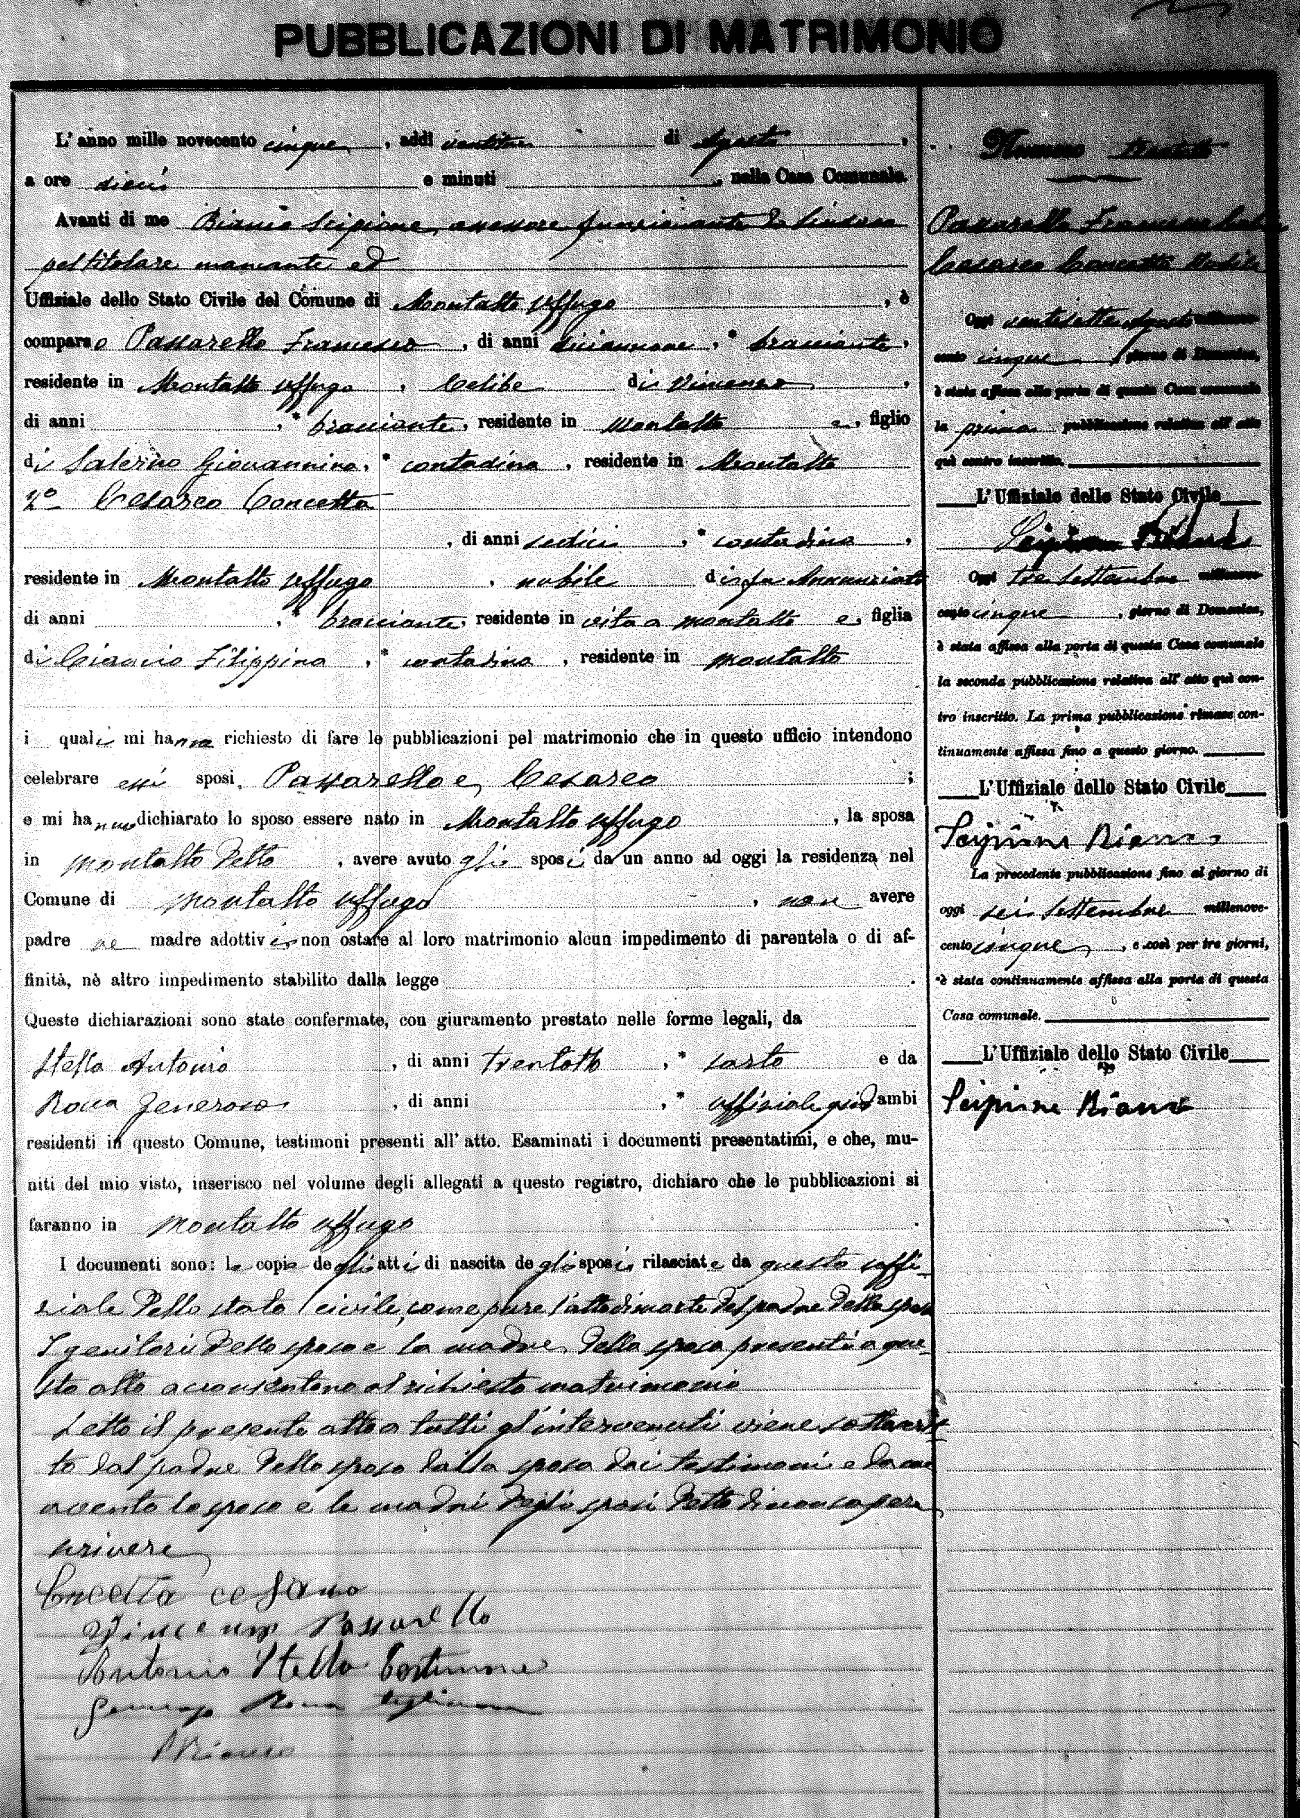 PUBBLICAZIONI DI MATRIMONIO
L'anno mille novecento cinque, addì ventitre di Agosto,
a ore dieci e minuti , nella Casa Comunale.
Avanti di me Bianco Scipione, assessore funzionante da Sindaco
pel titolare mancante ed
Uffiziale dello Stato Civile del Comune di Montalto Uffugo, è
comparso Passarello Francesco, di anni diciannove, * bracciante,
residente in Montalto Uffugo, Celibe di Vincenzo,
di anni , * bracciante, residente in Montalto e, figlio
di Salerno Giovannina, * contadina, residente in Montalto
2º Cesareo Concetta
, di anni sedici, * contadina,
residente in Montalto Uffugo, nubile di fu Annunziato
di anni , * bracciante, residente in vita a Montalto e, figlia
di Filippina, * contadina, residente in Montalto
i quali mi hanno richiesto di fare le pubblicazioni pel matrimonio che in questo ufficio intendono
celebrare essi sposi, Passarello e Cesareo ;
e mi hanno dichiarato lo sposo essere nato in Montalto Uffugo, la sposa
in Montalto Detto, avere avuto gli sposi da un anno ad oggi la residenza nel
Comune di Montalto Uffugo, non avere
padre ne madre adottivi e non ostare al loro matrimonio alcun impedimento di parentela o di af-
finità, nè altro impedimento stabilito dalla legge .
Queste dichiarazioni sono state confermate, con giuramento prestato nelle forme legali, da
Stella Antonio, di anni trentotto, * sarto e da
Rocca Generoso, di anni , * uffiziale giud ambi
residenti in questo Comune, testimoni presenti all'atto. Esaminati i documenti presentatimi, e che, mu-
niti del mio visto, inserisco nel volume degli allegati a questo registro, dichiaro che le pubblicazioni si
faranno in Montalto Uffugo .
I documenti sono: le copie degli atti di nascita degli sposi rilasciate da questo uffi-
ziale dello stato civile, come pure l'atto di morte del padre della sposa
I genitori dello sposo e la madre della sposa presenti a que-
sto atto acconsentono al richiesto matrimonio
Letto il presente atto a tutti gl'intervenuti viene sottoscrit-
to dal padre dello sposo dalla sposa dai testimoni e da me
avendo lo sposo e le madri degli sposi detto di non sapere
scrivere
Concetta Cesareo
Vincenzo Passarello
Antonio Stella Testimone
Generoso Rocca testimone
SBianco
Numero
Passarello Francesco Celibe
Cesareo Concetta Nubile
Oggi ventisette Agosto millenove-
cento cinque, giorno di Domenica,
è stata affissa alla porta di questa Casa comunale
la prima pubblicazione relativa all'atto
quì contro inscritto.
L'Uffiziale dello Stato Civile
Scipione Bianco
Oggi tre Settembre millenove-
cento cinque, giorno di Domenica,
è stata affissa alla porta di questa Casa comunale
la seconda pubblicazione relativa all'atto quì con-
tro inscritto. La prima pubblicazione rimase con-
tinuamente affissa fino a questo giorno.
L'Uffiziale dello Stato Civile
Scipione Bianco
La precedente pubblicazione fino al giorno di
oggi sei Settembre millenove-
cento cinque, e così per tre giorni,
è stata continuamente affissa alla porta di questa
Casa comunale.
L'Uffiziale dello Stato Civile
Scipione Bianco